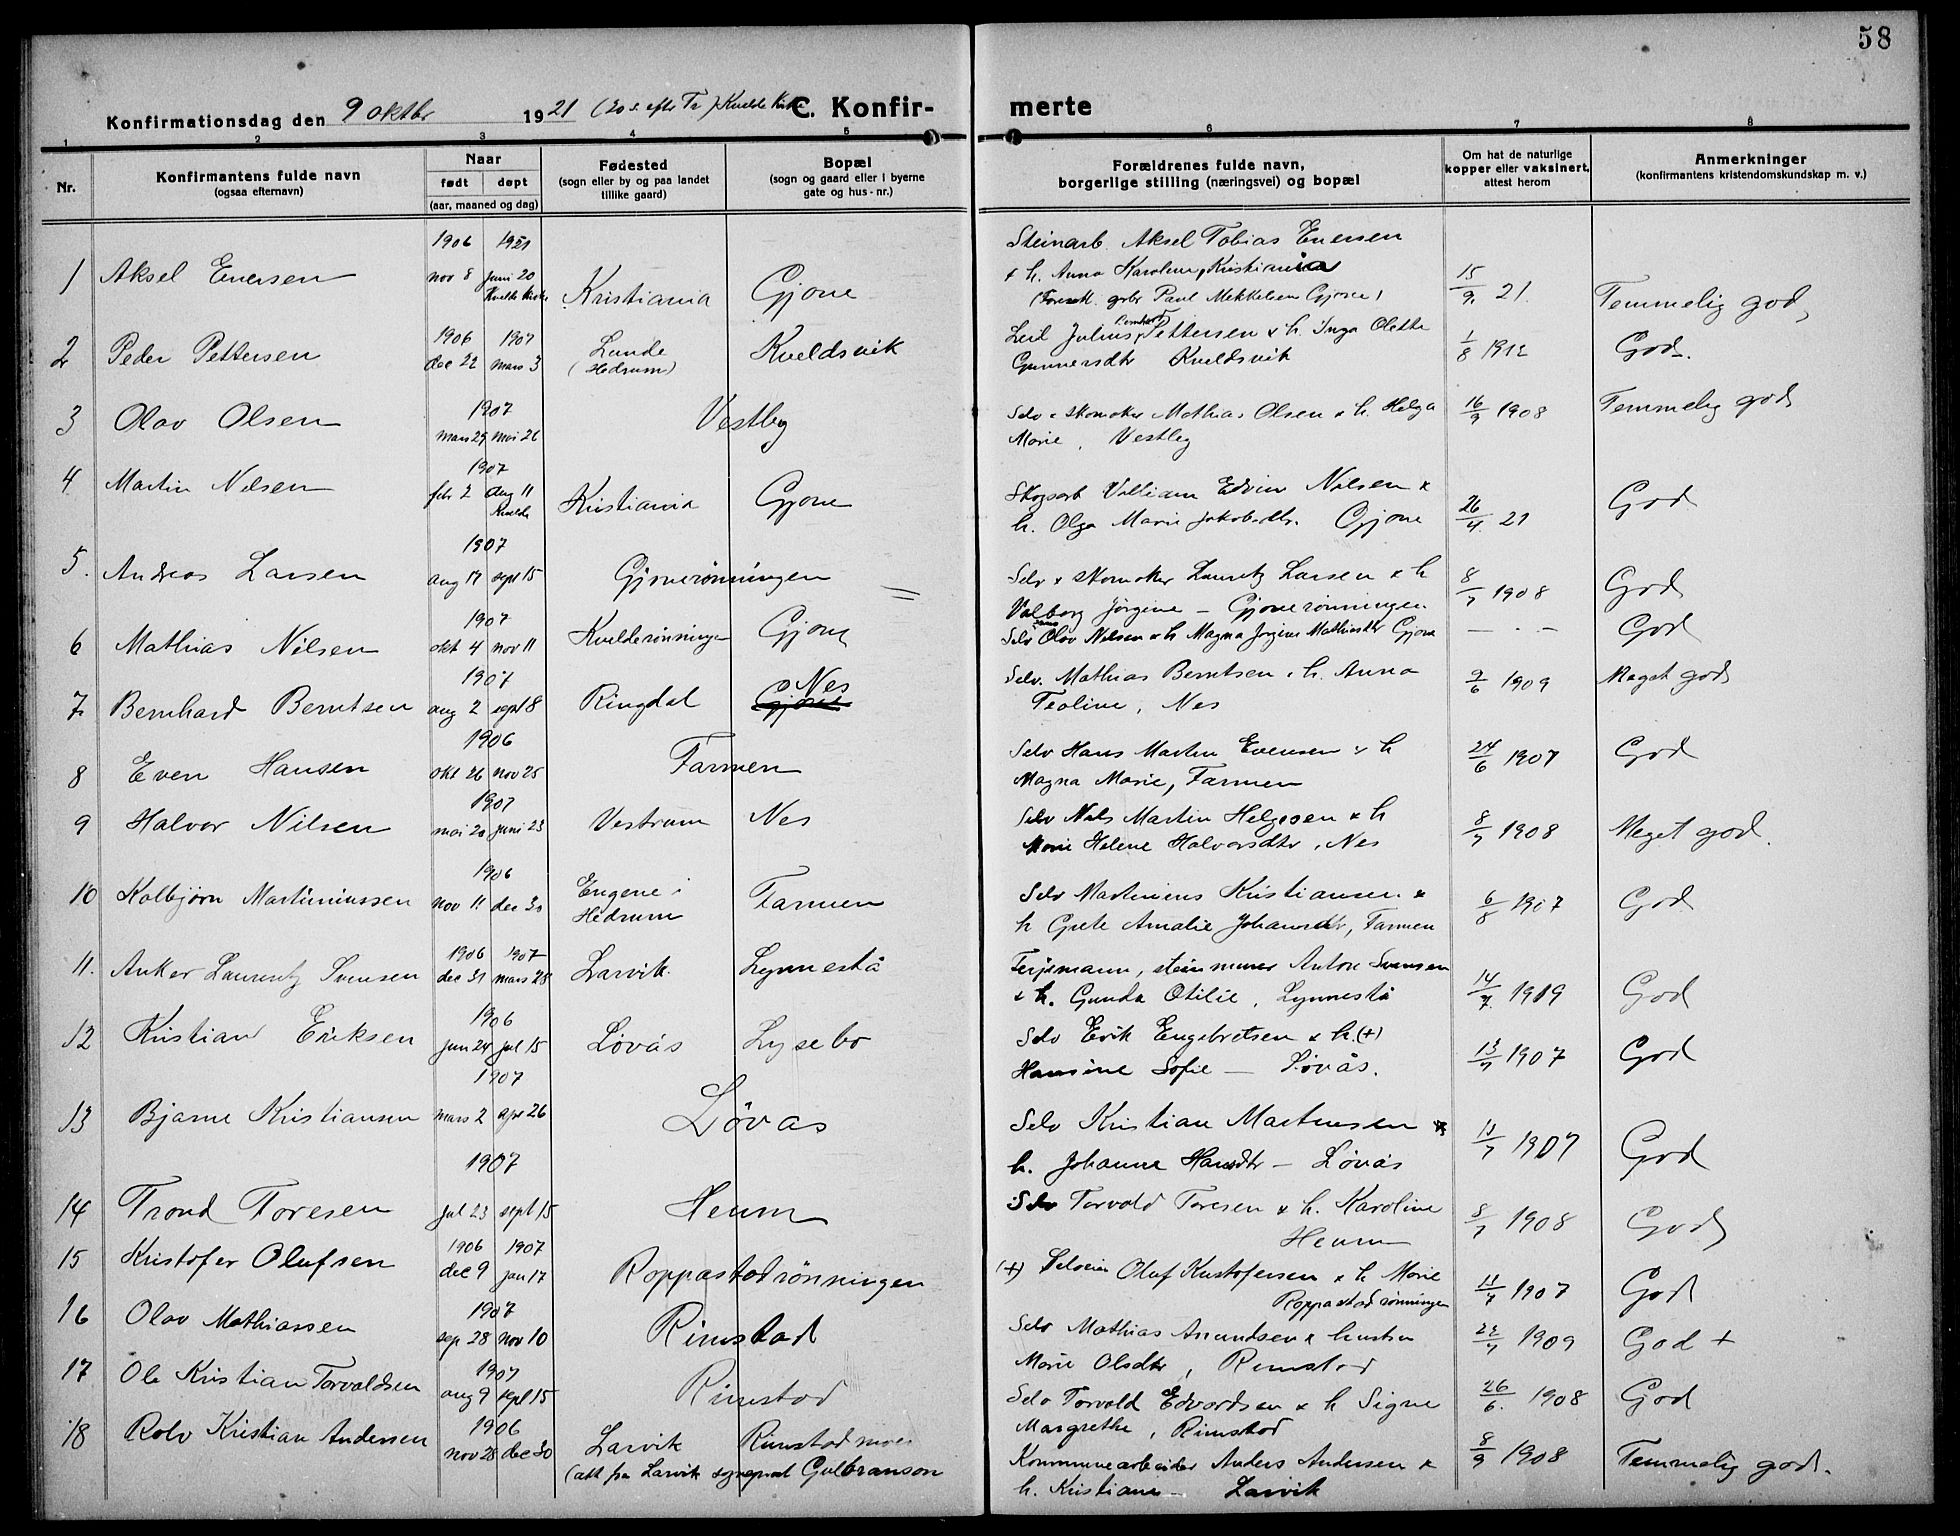 58
Konfirmationsdag den 9 oktbr 1921 (20 s. efter Tr) Kvelde Kirke C. Konfir-merte
1 2 3 4 5 6 7 8
Nr. Konfirmantens fulde navn (ogsaa efternavn) Naar født døpt (aar, maaned og dag) Fødested (sogn eller by og paa landet tillike gaard) Bopæl (sogn og gaard eller i byerne gate og hus-nr.) Forældrenes fulde navn, borgerlige stilling (næringsvei) og bopæl Om hat de naturlige kopper eller vaksinert, attest herom Anmerkninger (konfirmantens kristendomskundskap m. v.)
1906 1921 Steinarb. Aksel Tobias Enersen
1 Aksel Enersen nov 8 juni 20 Kvelde Kirke Kristiania Gjone & h. Anna Karoline, Kristiania 15/9. 21. Temmelig god
(Foresat. grbr Paul Mikkelsen Gjone)
1906 1907 Leil Julius Bernhard Pettersen & h Inga Olette
2 Peder Pettersen dec 22 mars 3 Lunde (Hedrum) Kveldsvik Gunnersdtr Kveldsvik 1/8 1912 God.
1907
3 Olav Olsen mars 29 mai 26 Vestby Selv & skomaker Mathias Olsen & h. Helga 16/9 1908 Temmelig god
Marie, Vestby
1907
4. Martin Nilsen febr 2 aug 11 Kvelde Kristiania Gjone Skogsarb Villiam Edvin Nilsen & 26/4. 21 God
h. Olga Marie Jakobsdtr. Gjone
1907
5. Andreas Larsen aug 17 sept 15 Gjonerønningen Selv & skomaker Lauritz Larsen & h 8/7 1908 God
Valborg Jørgine - Gjonerønningen
1907
6 Mathias Nilsen okt 4 nov 11 Kvelderønningen Gjone Selv Olav Nilsen & h Magna Jørgine Mathisdtr Gjone - . - God
1907
7 Bernhard Berntsen aug 2 sept 8 Ringdal Nes Gjone Selv. Mathias Berntsen & h. Anna 9/6 1909 Meget god
Teoline, Nes
1906
8 Even Hansen okt 26 nov 25 Farmen Selv Hans Martin Evensen & h 24/6 1907 God
Magna Marie, Farmen
1907
9 Halvor Nilsen mai 20 juni 23 Vestrum Nes Selv Nils Martin Helgesen & h 8/7 1908 Meget god.
Marie Helene Halvorsdtr, Nes
1906
10 Kolbjørn Martiniussen nov 11 dec 30 Engene i Hedrum Farmen Selv Martinius Kristiansen & 6/8 1907 God
h Grete Amalie Johansdtr, Farmen
1906 1907
11. Anker Lauritz Svensen dec 31 mars 28 Larvik Lynnestå Ferjemann, steinmurer Anton Svensen 14/7. 1919 God
& h. Gunda Otilie, Lynnestå
1906
12 Kristian Eriksen jun 24 jul 15 Løvås Lysebo Selv Erik Engebretsen & h.(+) 13/7 1907 God
Hansine Sofie - Løvås.
1907
13 Bjarne Kristiansen mars 2 apr 26 Løvas Selv Kristian Martinsen & 11/7 1907 God
h. Johanne Hansdtr - Løvås
1907
14 Trond Toresen jul 23 sept 15 Heum Selv Torvald Toresen & h. Karoline 8/7 1908 God
Heum
1906 1907
15 Kristofer Olufsen dec 9 jan 17 Roppastadrønningen (+) Selveier Oluf Kristofersen & h Marie 11/7 1907 God
Roppastadrønningen
1907
16 Olav Mathiassen sep 28 nov 10 Rimstad Selv Mathias Amundsen & hustru 22/7 1909 God +
Marie Olsdtr, Rimstad
1907
17 Ole Kristian Torvaldsen aug 9 sept 15 Rimstad Selv Torvald Edvardsen & h Signe 26/6. 1908 God
Margrethe, Rimstad
1906
18 Rolv Kristian Andersen nov 28 dec 30 Larvik Rimstadmoen Kommunearbeider Anders Andersen & 8/9 1908 Temmelig god.
(att fra Larvik sogneprest Gulbranson h. Kristiane - Larvik